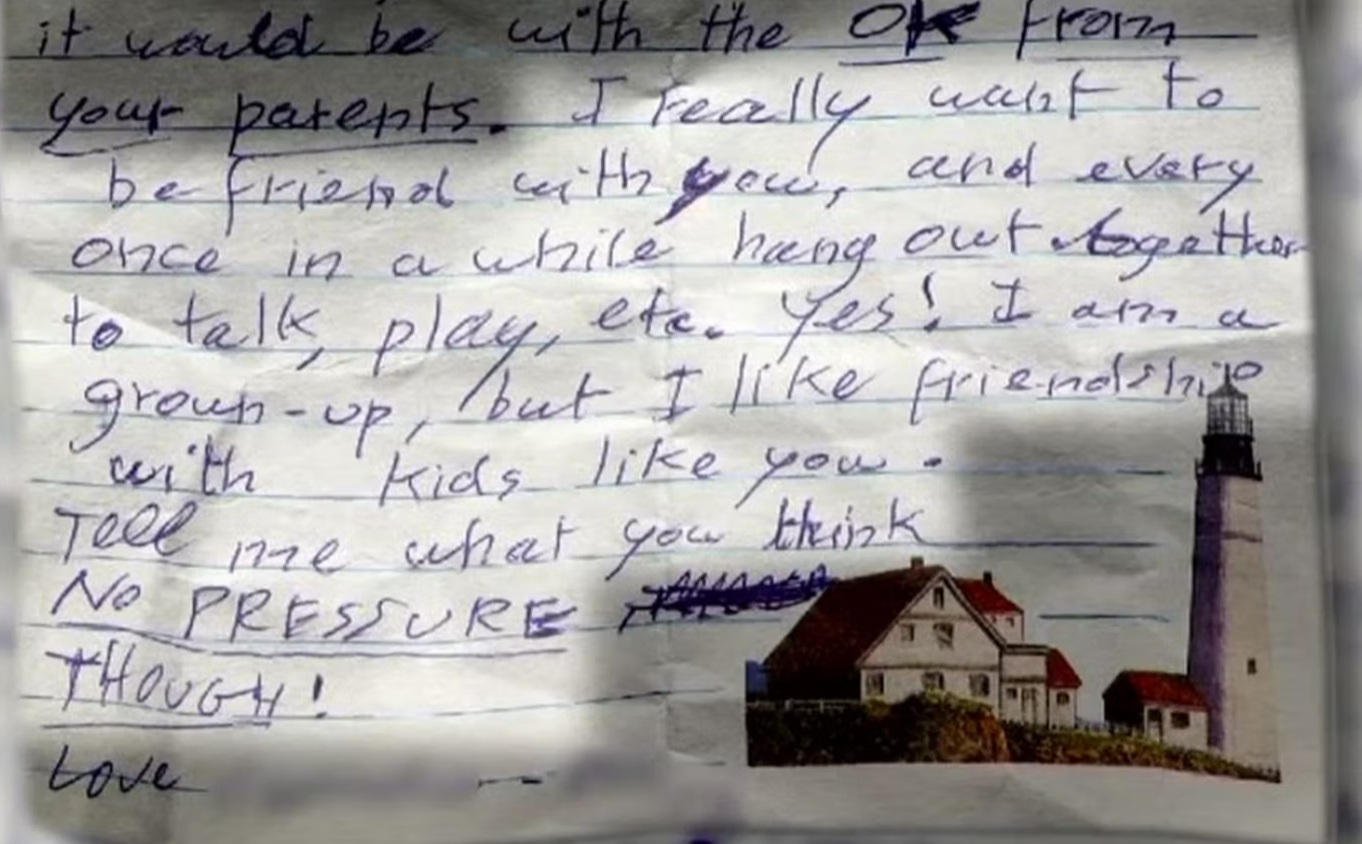 it would be with the OK from
your parents. I really want to
be friend with you, and every
once in a while hang out together
to talk, play, etc. Yes! I am a
grown-up, but I like friendship
with kids like you.
Tell me what you think
NO PRESSURE
THOUGH!
Love